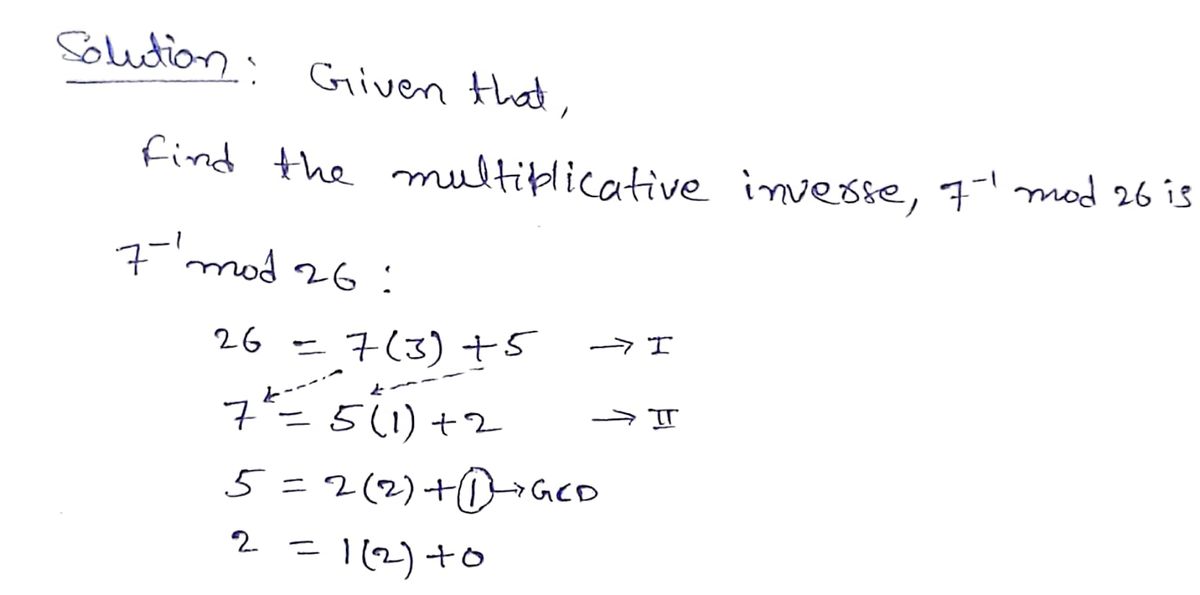 Solution: Given that,
find the multiplicative inverse, 7⁻¹ mod 26 is
7⁻¹ mod 26 :
26 = 7(3) + 5 → I
7 = 5(1) + 2 → II
5 = 2(2) + 1 → GCD
2 = 1(2) + 0